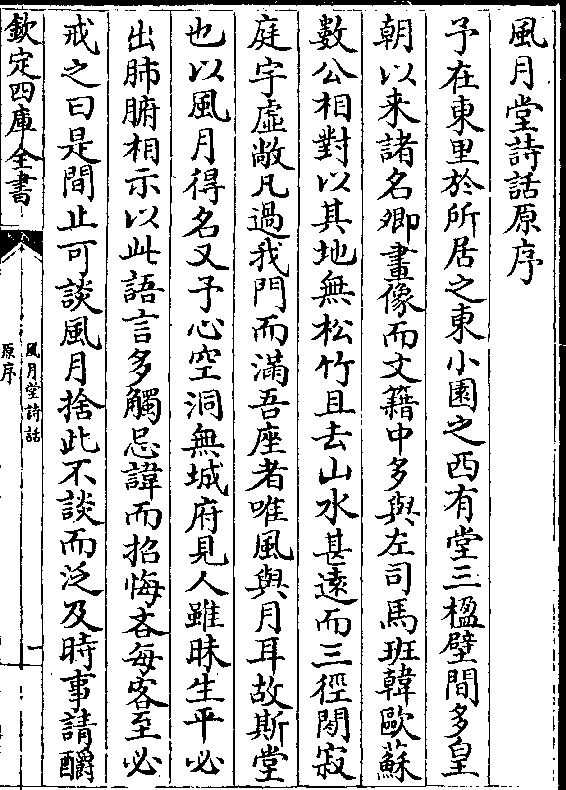 風月堂詩話原序
予在東里於所居之東小園之西有堂三楹壁間多皇
朝以来諸名卿畫像而文籍中多與左司馬班韓歐蘇
數公相對以其地無松竹且去山水甚遠而三徑閴寂
庭宇虛敞凡過我門而滿吾座者唯風與月耳故斯堂
也以風月得名又予心空洞無城府見人雖昧生平必
出肺腑相示以此語言多觸忌諱而招悔吝每客至必
戒之曰是間止可談風月捨此不談而泛及時事請釂
欽定四庫全書
風月堂詩話
原序
一